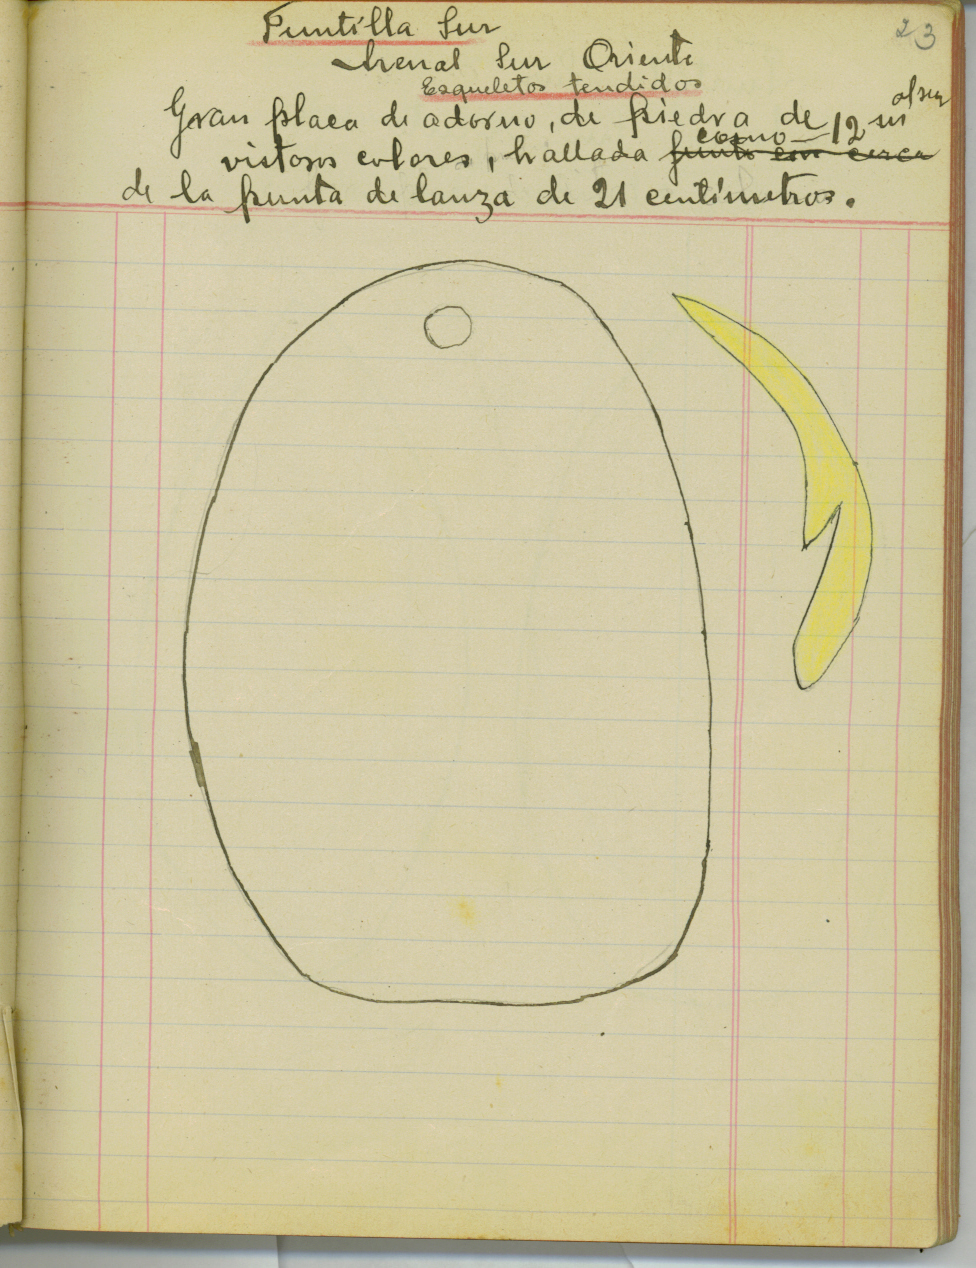 23
Puntilla Sur
Arenal Sur Oriente
Esqueletos tendidos
al sur
Gran placa de adorno, de piedra de
como 12 m
vistosos colores, hallada junto con cerca
de la punta de lanza de 21 centímetros.